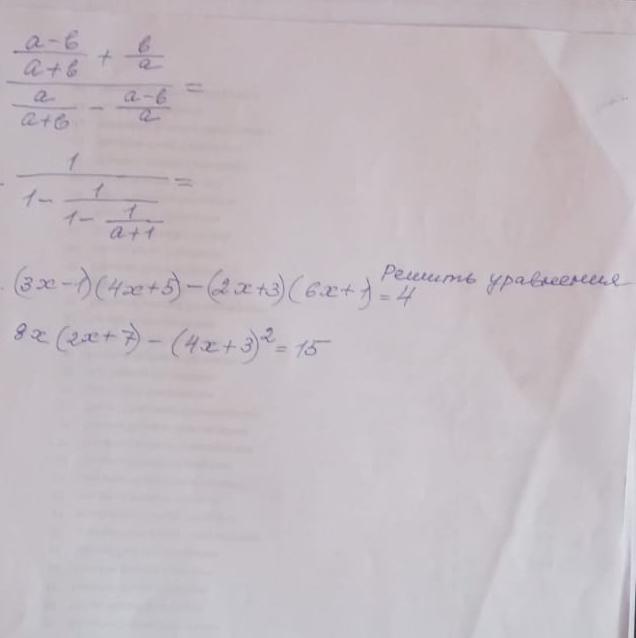 \frac{\frac{a-b}{a+b} + \frac{b}{a}}{\frac{a}{a+b} - \frac{a-b}{a}} =
\frac{1}{1 - \frac{1}{1 - \frac{1}{a+1}}} =
Решить уравнения
(3x-1)(4x+5)-(2x+3)(6x+1)=4
8x(2x+7)-(4x+3)²=15